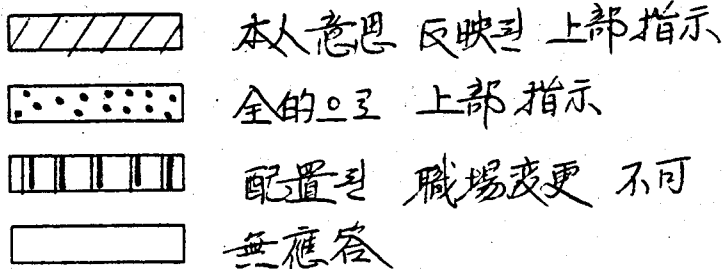 本人意思 反映된 上部指示
全的으로 上部指示
配置된 職場変更 不可
無應答